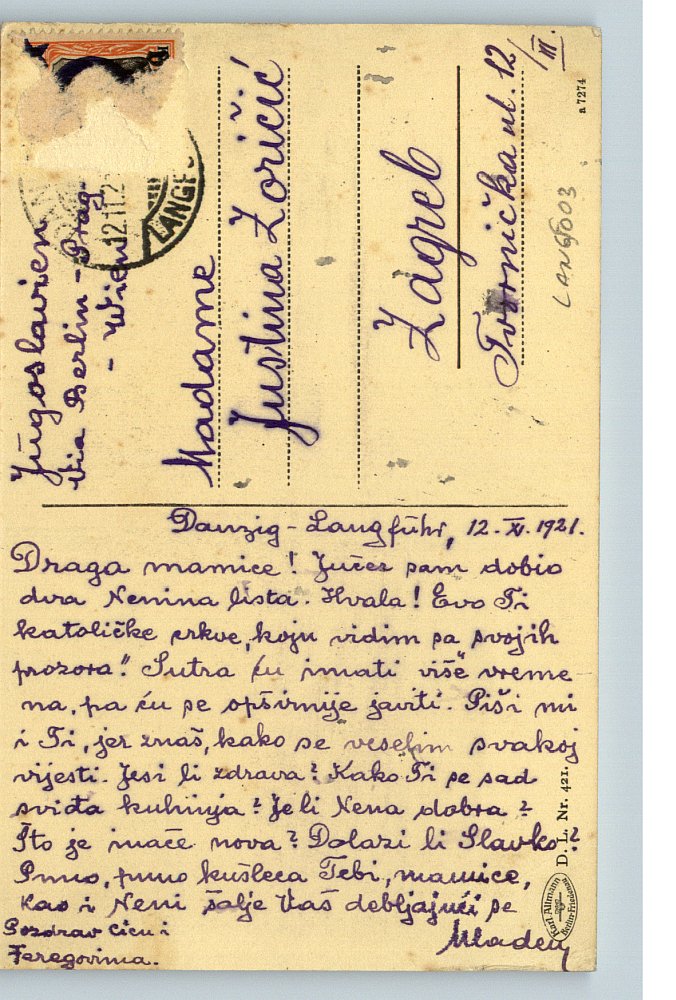 Jugoslavien
Via Berlin - Prag
- Wien
12.11.2
LANGF
Madame
Justina Zoričić
Zagreb
Tvornička ul. 12/III.
a 7274
LANGF003
Danzig - Langführ, 12. XI. 1921.
Draga mamice! Jučer sam dobio
dva Nenina lista. Hvala! Evo Ti
katoličke crkve, koju vidim sa svojih
prozora! Sutra ću imati više vreme-
na, pa ću se opširnije javiti. Piši mi
i Ti, jer znaš, kako se veselim svakoj
vijesti. Jesi li zdrava? Kako Ti se sad
sviđa kuhinja? Je li Nena dobra?
Što je inače nova? Dolazi li Slavko?
Puno, puno kušleca Tebi, mamice,
kao i Neni šalje Vaš debljajući se
Mladen
Pozdrav cicu i
Feregovima.
D. L. Nr. 421.
Karl Altmann
Berlin-Friedenau